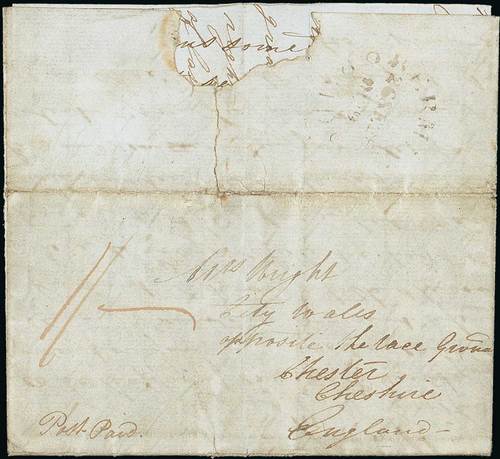 us some
Mrs Wright
City Walls
opposite the race Ground
Chester
Cheshire
England
Post Paid.